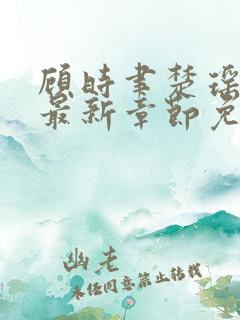 顾时聿楚瑶
最新章节免
幽老
未经同意禁止转载